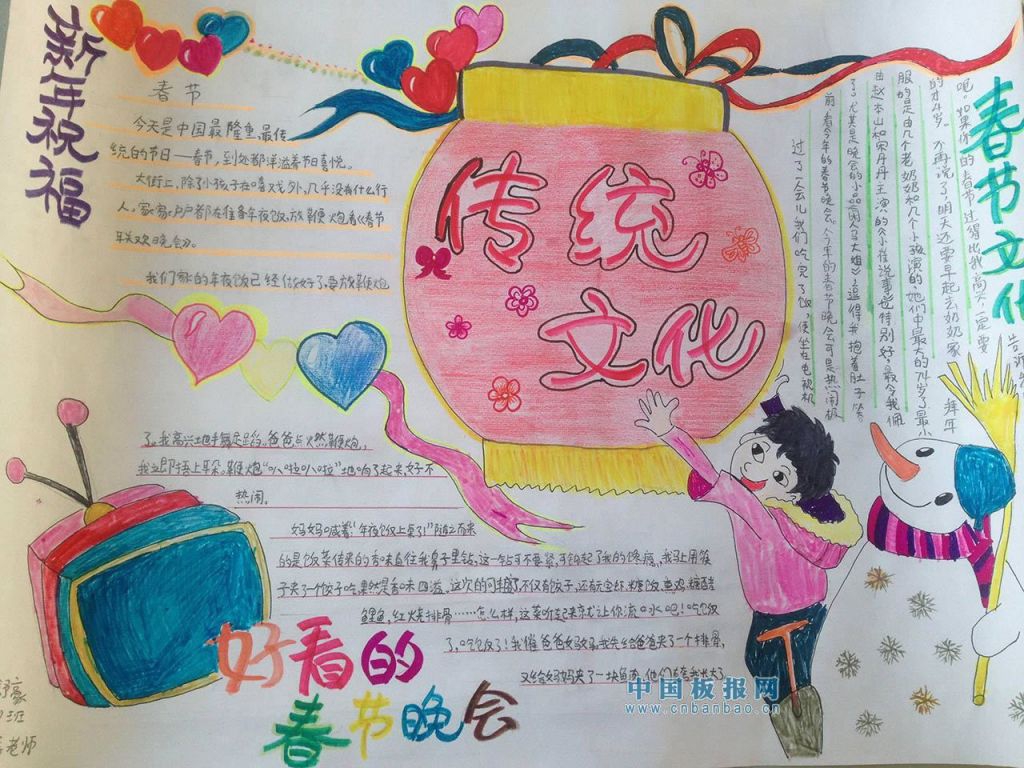 新年祝福
春节
今天是中国最隆重、最传
统的节日——春节，到处都洋溢着节日喜悦。
大街上，除了小孩子在嘻戏外，几乎没有什么行
人，家家户户都在准备年夜饭、放鞭炮、看《春节
联欢晚会》。
我们家的年夜饭已经做好了，要放鞭炮
了，我高兴地手舞足蹈。爸爸点火然鞭炮，
我立即捂上耳朵，鞭炮“啪啦啪啦”地响了起来，好不
热闹。
妈妈喊着：“年夜饭上桌了！”随之而来
的是饭菜传来的香味直往我鼻子里钻，这一钻可不要紧，可勾起了我的馋瘾，我马上用筷
子夹了一个饺子吃，果然是香味四溢。这次的可丰盛了，不仅有饺子，还有八宝饭、糖醋
鲤鱼，红烧排骨……怎么样，这菜听起来就让你流口水吧！吃饭
了，吃饭了！我催爸爸妈妈，我先给爸爸夹了一个排骨，
又给妈妈夹了一块鱼肉，他们夸我长大了
传统
文化
春节文化
过了一会儿，我们吃完了饭，便坐在电视机
前看今年的春节晚会。今年的春节晚会可是热闹极
了，尤其是晚会的小品《闲人马大姐》，逗得我抱着肚子笑
由赵本山和宋丹丹主演的《小崔说事》说特别好，最令我佩
服的是由几个老奶奶和几个小孩演的，她们中最大的74岁了，最小
的才4岁。不再说了，明天还要早起去奶奶家拜年
呢。如果你的春节过得比我高兴一定要告诉
好看的
春节晚会
班
老师
中国板报网
www.cnbanbao.cn